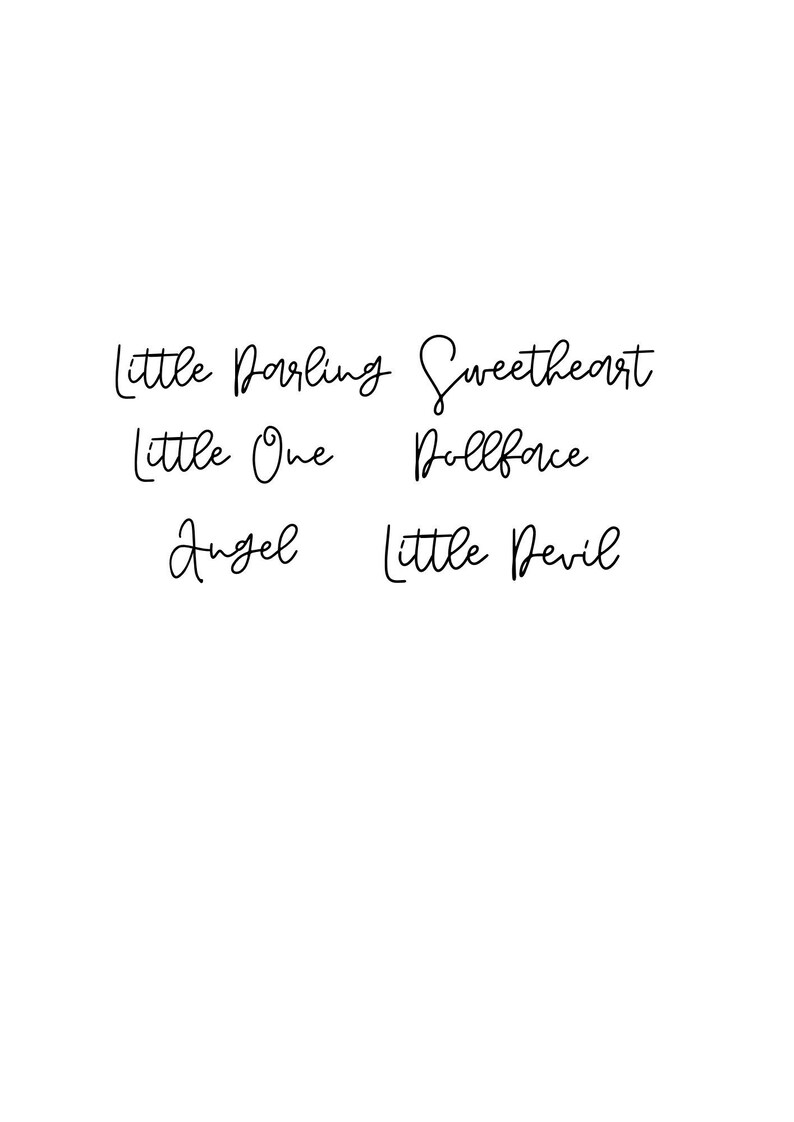 Little Darling Sweetheart
Little One Dollface
Angel Little Devil